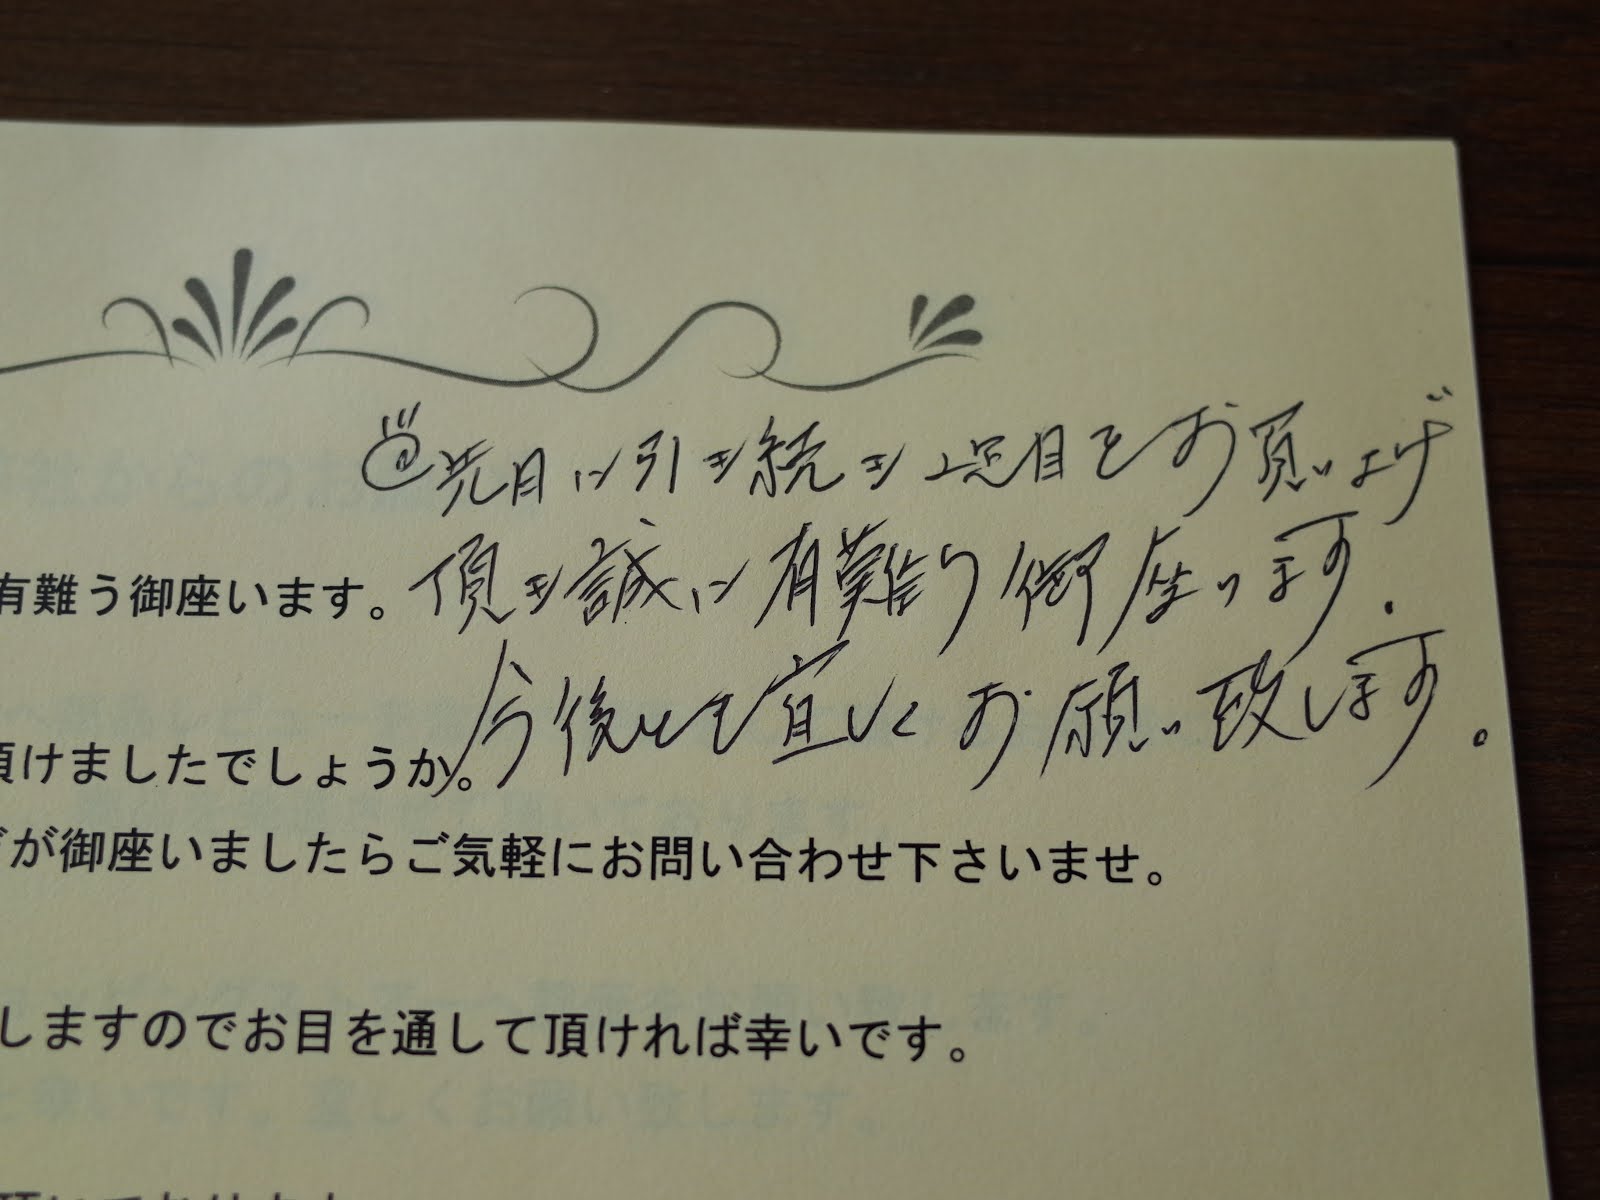 先月に引き続き2足目をお買い上げ
頂き誠に有難う御座います.
今後とも宜しくお願い致します。
有難う御座います。
頂けましたでしょうか。
が御座いましたらご気軽にお問い合わせ下さいませ。
しますのでお目を通して頂ければ幸いです。